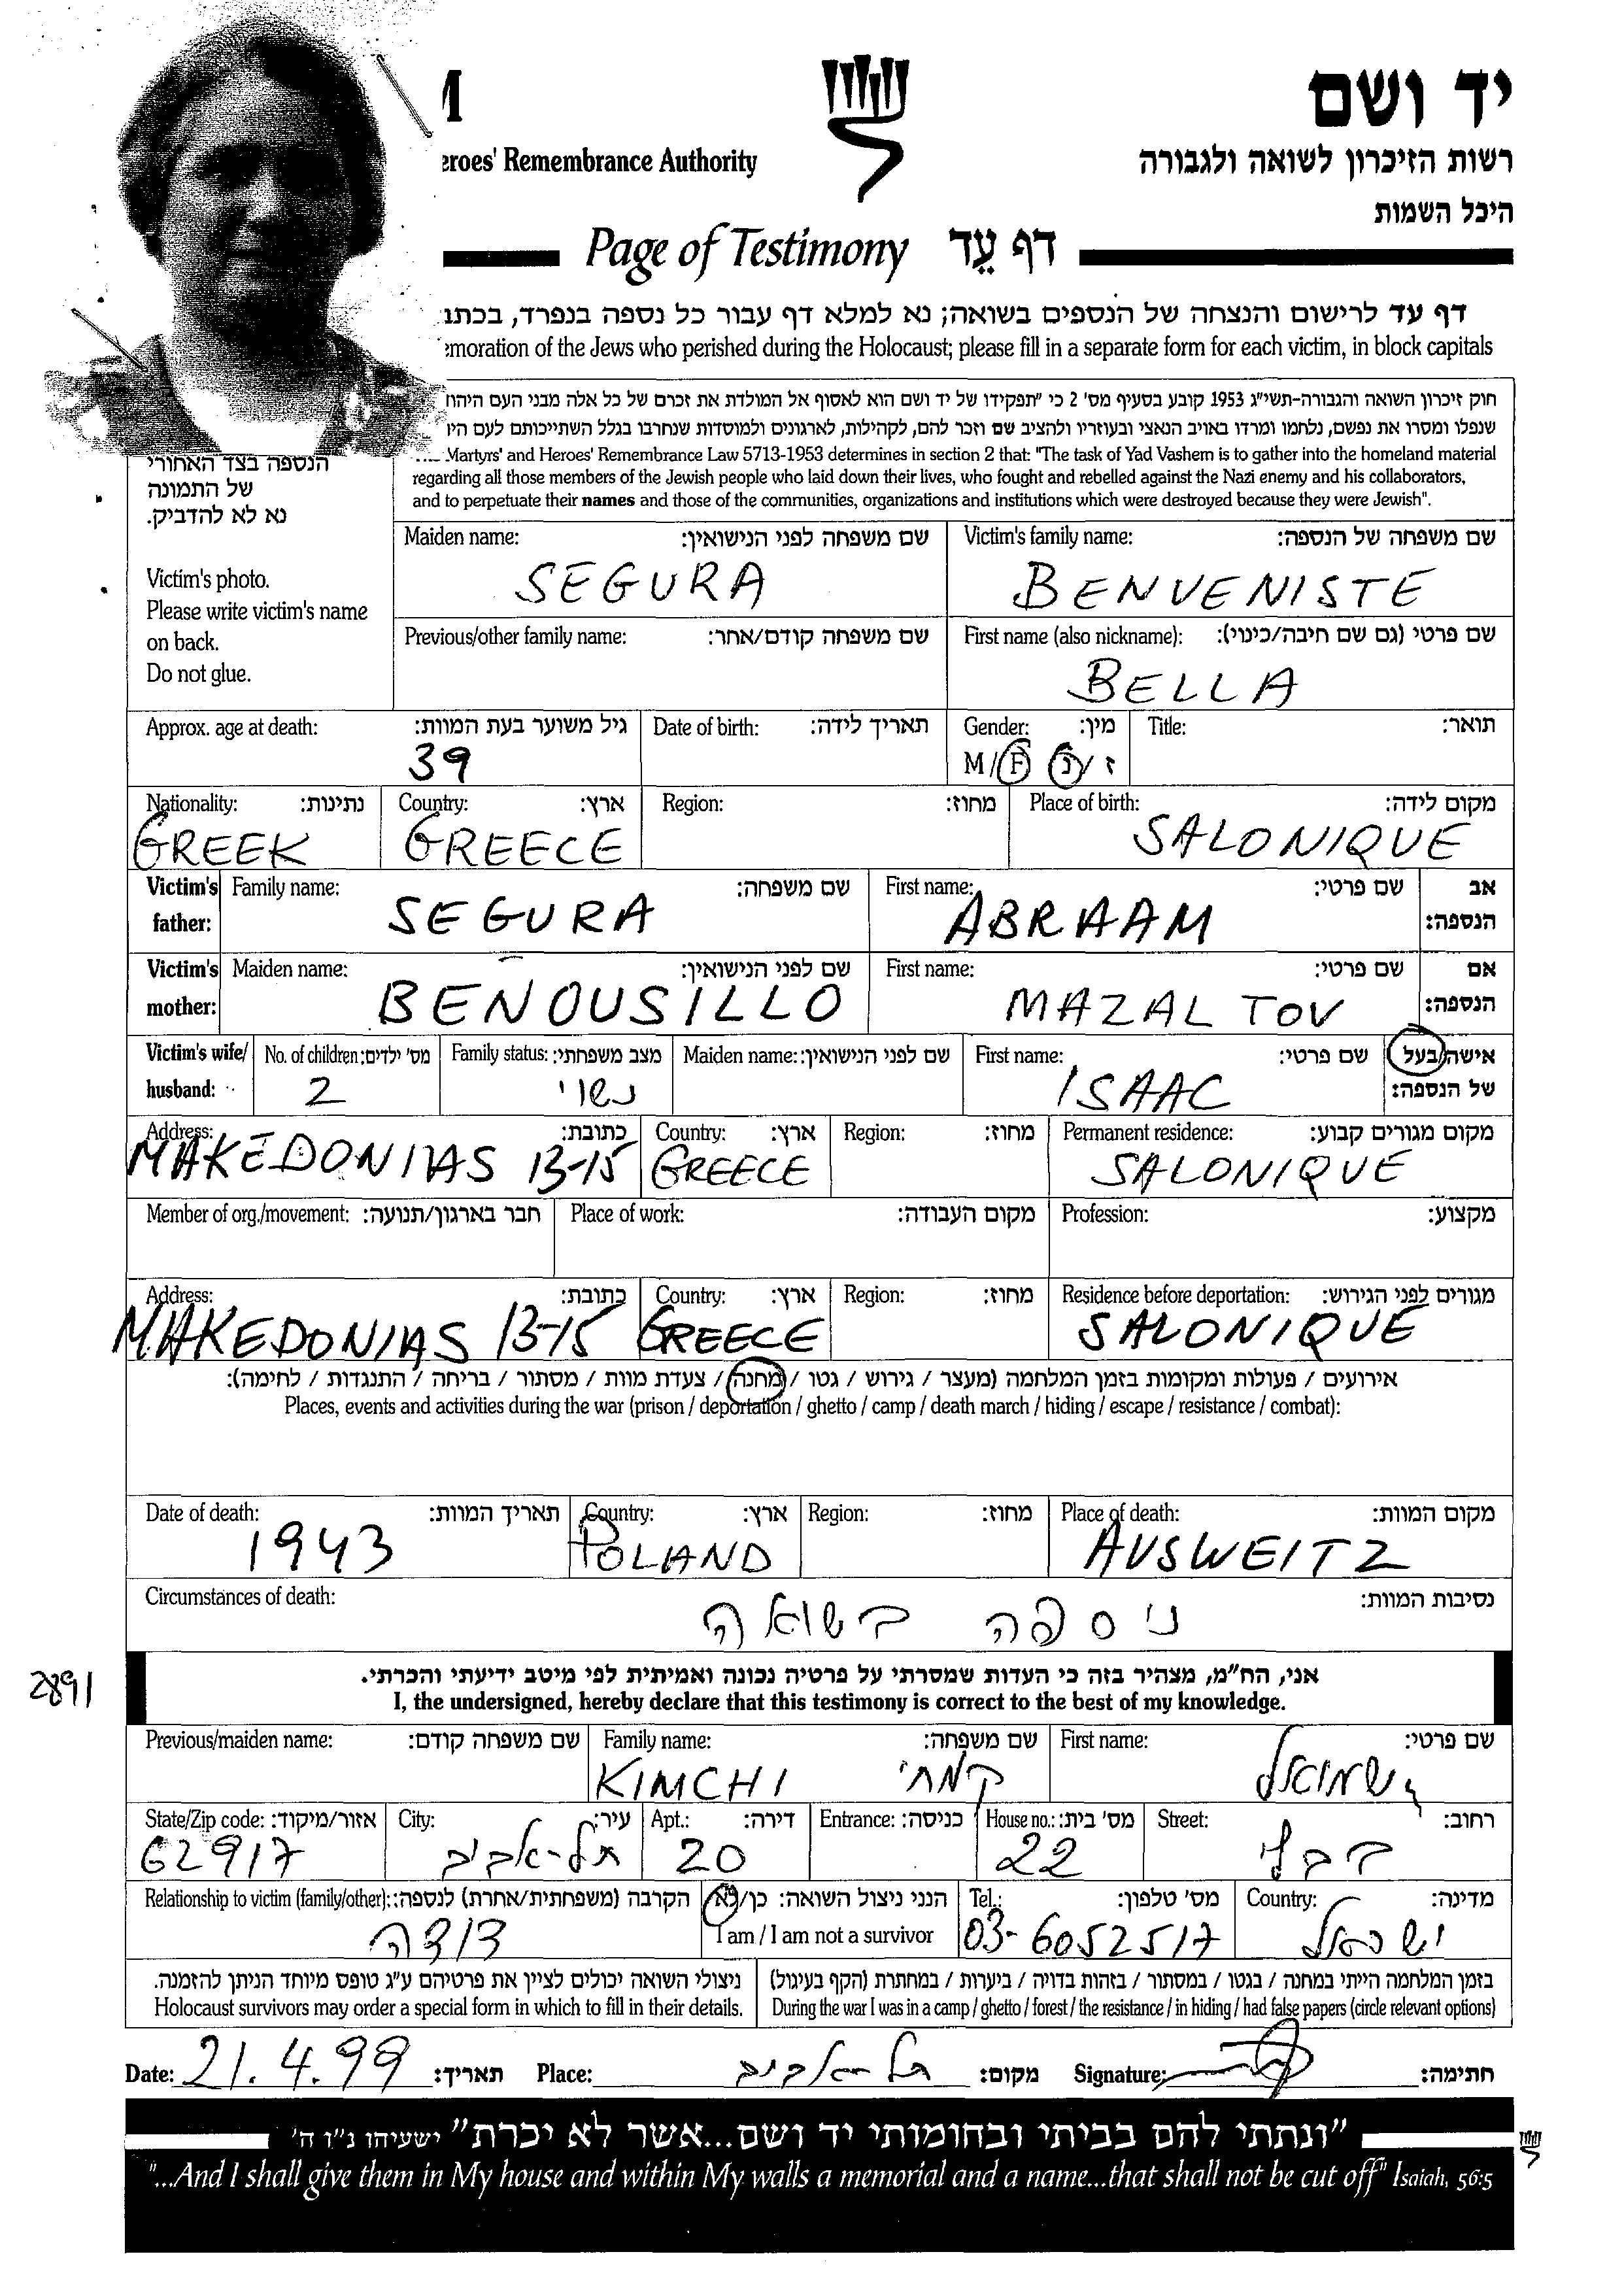 M
יד ושם
eroes' Remembrance Authority
רשות הזיכרון לשואה ולגבורה
היכל השמות
Page of Testimony דף עֵד
דף עד לרישום והנצחה של הנספים בשואה; נא למלא דף עבור כל נספה בנפרד, בכתב
emoration of the Jews who perished during the Holocaust; please fill in a separate form for each victim, in block capitals
חוק זיכרון השואה והגבורה-תשי"ג 1953 קובע בסעיף מס' 2 כי "תפקידו של יד ושם הוא לאסוף אל המולדת את זכרם של כל אלה מבני העם היהוד
שנפלו ומסרו את נפשם, נלחמו ומרדו באויב הנאצי ובעוזריו ולהציב שם וזכר להם, לקהילות, לארגונים ולמוסדות שנחרבו בגלל השתייכותם לעם היו
Martyrs' and Heroes' Remembrance Law 5713-1953 determines in section 2 that: "The task of Yad Vashem is to gather into the homeland material
regarding all those members of the Jewish people who laid down their lives, who fought and rebelled against the Nazi enemy and his collaborators,
and to perpetuate their names and those of the communities, organizations and institutions which were destroyed because they were Jewish".
הנספה בצד האחורי
של התמונה
נא לא להדביק.
Victim's photo.
Please write victim's name
on back.
Do not glue.
Maiden name: שם משפחה לפני הנישואין: Victim's family name: שם משפחה של הנספה:
SEGURA BENVENISTE
Previous/other family name: שם משפחה קודם/אחר: First name (also nickname): שם פרטי (גם שם חיבה/כינוי):
BELLA
Approx. age at death: גיל משוער בעת המוות: Date of birth: תאריך לידה: Gender: מין: Title: תואר:
39 M/F ז/נ
Nationality: נתינות: Country: ארץ: Region: מחוז: Place of birth: מקום לידה:
GREEK GREECE SALONIQUE
Victim's father: Family name: שם משפחה: First name: שם פרטי: אב הנספה:
SEGURA ABRAAM
Victim's mother: Maiden name: שם לפני הנישואין: First name: שם פרטי: אם הנספה:
BENOUSILLO MAZAL TOV
Victim's wife/husband: No. of children: מס' ילדים: Family status: מצב משפחתי: Maiden name: שם לפני הנישואין: First name: שם פרטי: אישה/בעל של הנספה:
2 נשוי ISAAC
Address: כתובת: Country: ארץ: Region: מחוז: Permanent residence: מקום מגורים קבוע:
MAKEDONIAS 13-15 GREECE SALONIQUE
Member of org./movement: חבר בארגון/תנועה: Place of work: מקום העבודה: Profession: מקצוע:
Address: כתובת: Country: ארץ: Region: מחוז: Residence before deportation: מגורים לפני הגירוש:
MAKEDONIAS 13-15 GREECE SALONIQUE
אירועים / פעולות ומקומות בזמן המלחמה (מעצר / גירוש / גטו / מחנה / צעדת מוות / מסתור / בריחה / התנגדות / לחימה):
Places, events and activities during the war (prison / deportation / ghetto / camp / death march / hiding / escape / resistance / combat):
Date of death: תאריך המוות: Country: ארץ: Region: מחוז: Place of death: מקום המוות:
1943 POLAND AUSWEITZ
Circumstances of death: נסיבות המוות:
ניספה בשואה
2891
אני, הח"מ, מצהיר בזה כי העדות שמסרתי על פרטיה נכונה ואמיתית לפי מיטב ידיעתי והכרתי.
I, the undersigned, hereby declare that this testimony is correct to the best of my knowledge.
Previous/maiden name: שם משפחה קודם: Family name: שם משפחה: First name: שם פרטי:
KIMCHI קמחי שמואל
State/Zip code: אזור/מיקוד: City: עיר: Apt.: דירה: Entrance: כניסה: House no.: מס' בית: Street: רחוב:
62917 תל-אביב 20 22
Relationship to victim (family/other): הקרבה (משפחתית/אחרת) לנספה: הנני ניצול השואה: כן/לא Tel.: מס' טלפון: Country: מדינה:
דודה I am / I am not a survivor 03-6052517 ישראל
ניצולי השואה יכולים לציין את פרטיהם ע"ג טופס מיוחד הניתן להזמנה. בזמן המלחמה הייתי במחנה / בגטו / במסתור / בזהות בדויה / ביערות / במחתרת (הקף בעיגול)
Holocaust survivors may order a special form in which to fill in their details. During the war I was in a camp / ghetto / forest / the resistance / in hiding / had false papers (circle relevant options)
Date: 21.4.99 תאריך: Place: תל-אביב מקום: Signature: חתימה:
"ונתתי להם בביתי ובחומותי יד ושם...אשר לא יכרת" ישעיהו נ"ו ה'
"...And I shall give them in My house and within My walls a memorial and a name...that shall not be cut off" Isaiah, 56:5